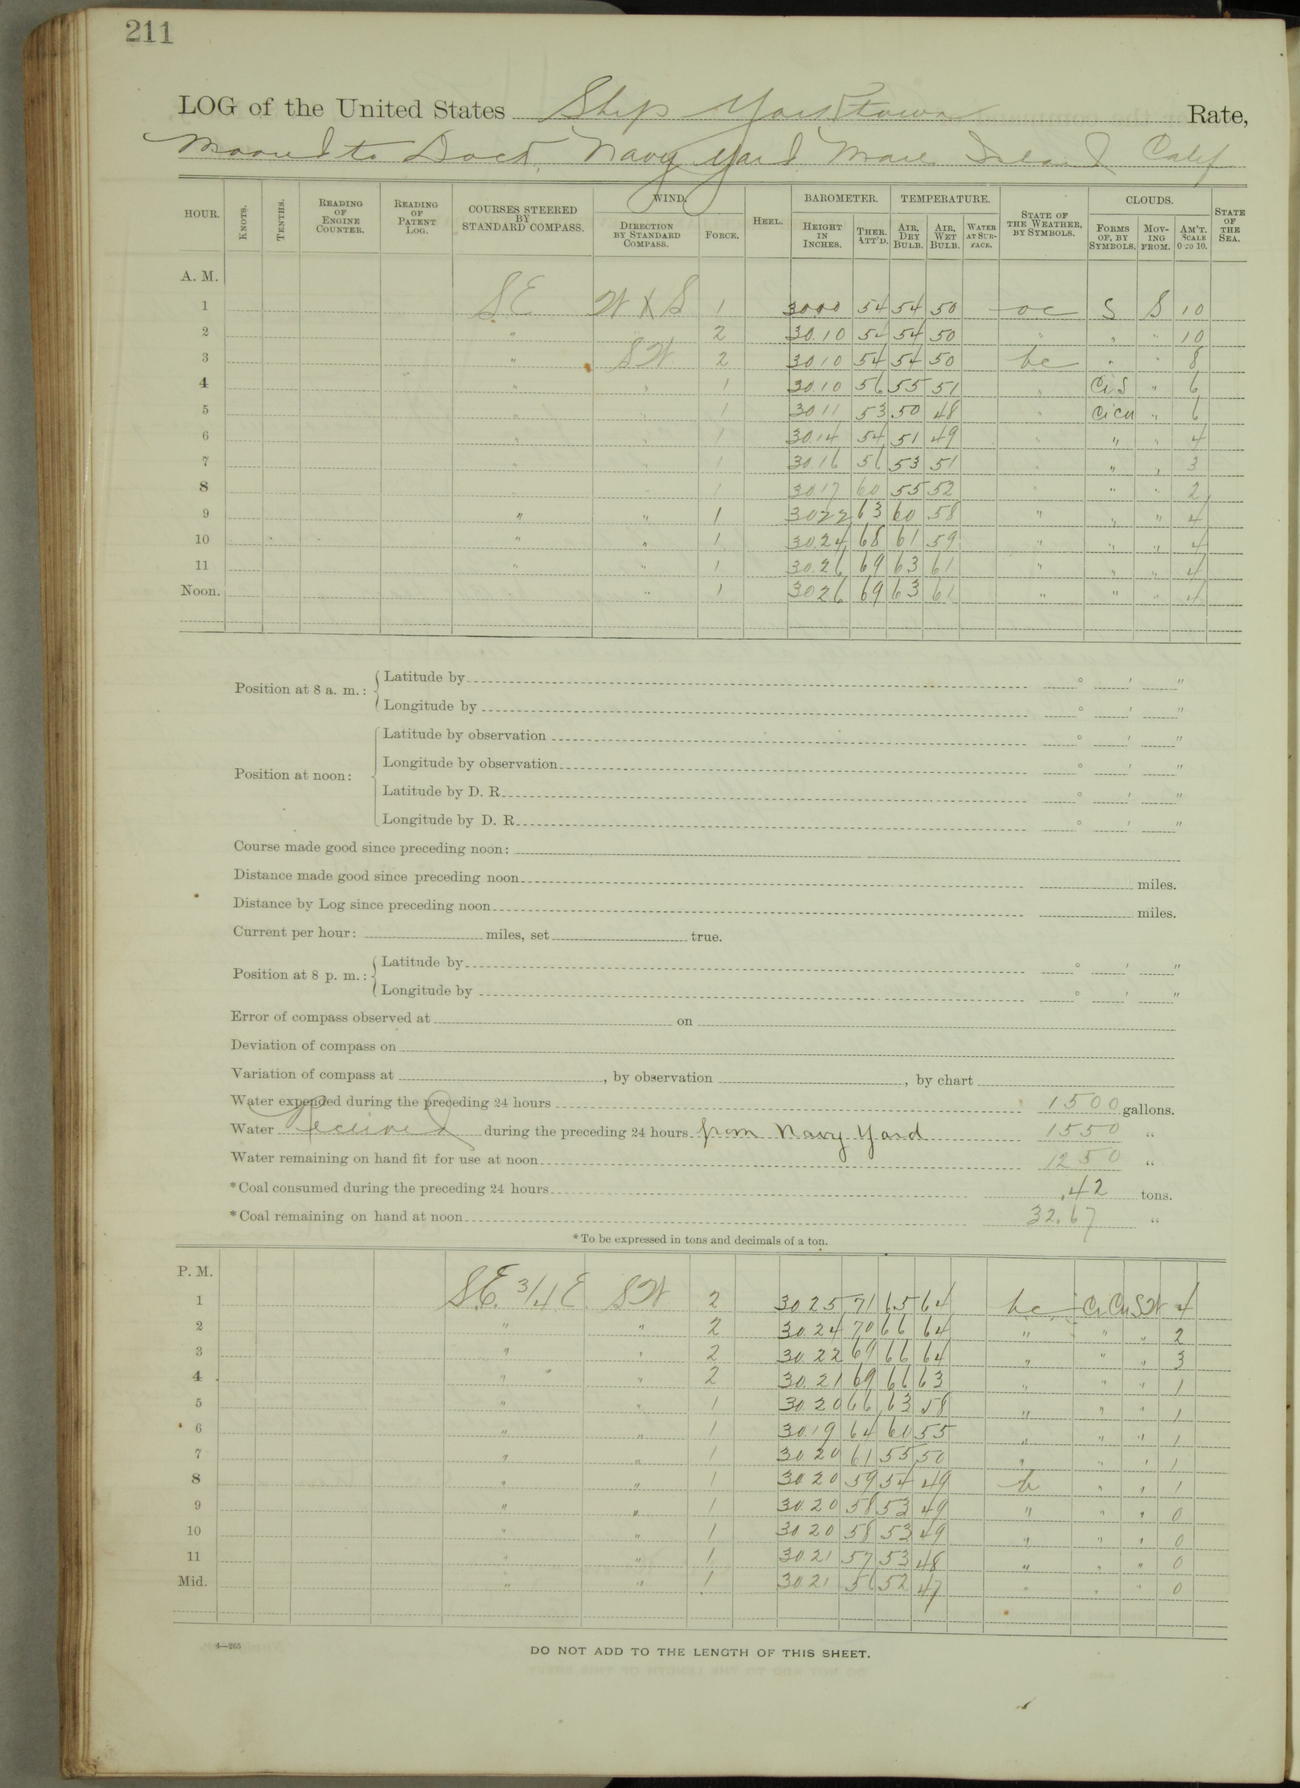 211
LOG of the United States Ship Yorktown Rate,
Moored to Dock, Navy Yard Mare Island Calif
HOUR. KNOTS. TENTHS. READING OF ENGINE COUNTER. READING OF PATENT LOG. COURSES STEERED BY STANDARD COMPASS. WIND. DIRECTION BY STANDARD COMPASS. FORCE. HEEL. BAROMETER. HEIGHT IN INCHES. THER. ATT'D. TEMPERATURE. AIR, DRY BULB. AIR, WET BULB. WATER AT SURFACE. STATE OF THE WEATHER, BY SYMBOLS. CLOUDS. FORMS OF, BY SYMBOLS. MOVING FROM. AM'T. SCALE 0 TO 10. STATE OF THE SEA.
A. M.
1 SE W X S 1 3000 54 54 50 oc S S 10
2 " 2 30.10 54 54 50 " " " 10
3 " SW 2 30 10 54 54 50 bc " " 8
4 " " 1 30.10 56 55 51 " Ci S " 6
5 " " 1 30 11 53 50 48 " Ci cu " 6
6 " " 1 30.14 54 51 49 " " " 4
7 " " 1 30 16 56 53 51 " " " 3
8 " 1 30 17 60 55 52 " " " 2
9 " " 1 30 22 63 60 58 " " " 4
10 " " 1 30.24 68 61 59 " " " 4
11 " " 1 30.26 69 63 61 " " " 4
Noon. " 1 30 26 69 63 61 " " " 4
Position at 8 a. m.: Latitude by ° ' "
Longitude by ° ' "
Position at noon: Latitude by observation ° ' "
Longitude by observation ° ' "
Latitude by D. R ° ' "
Longitude by D. R ° ' "
Course made good since preceding noon:
Distance made good since preceding noon miles.
Distance by Log since preceding noon miles.
Current per hour: miles, set true.
Position at 8 p. m.: Latitude by ° ' "
Longitude by ° ' "
Error of compass observed at on
Deviation of compass on
Variation of compass at , by observation , by chart
Water expended during the preceding 24 hours 1500 gallons.
Water Received during the preceding 24 hours from Navy Yard 1550 "
Water remaining on hand fit for use at noon 1250 "
*Coal consumed during the preceding 24 hours .42 tons.
*Coal remaining on hand at noon 32.67 "
*To be expressed in tons and decimals of a ton.
P. M.
1 S.E. 3/4 E SW 2 30 25 71 65 64 bc Ci Cu SW 4
2 " " 2 30.24 70 66 64 " " " 2
3 " " 2 30.22 69 66 64 " " " 3
4 " " 2 30.21 69 66 63 " " " 1
5 " " 1 30.20 66 63 58 " " " 1
6 " " 1 30.19 64 60 55 " " " 1
7 " " 1 30 20 61 55 50 " " " 1
8 " " 1 30 20 59 54 49 b " " 1
9 " " 1 30.20 58 53 49 " " " 0
10 " " 1 30 20 58 53 49 " " " 0
11 " " 1 30.21 57 53 48 " " " 0
Mid. " " 1 30.21 56 52 47 " " " 0
4—265
DO NOT ADD TO THE LENGTH OF THIS SHEET.